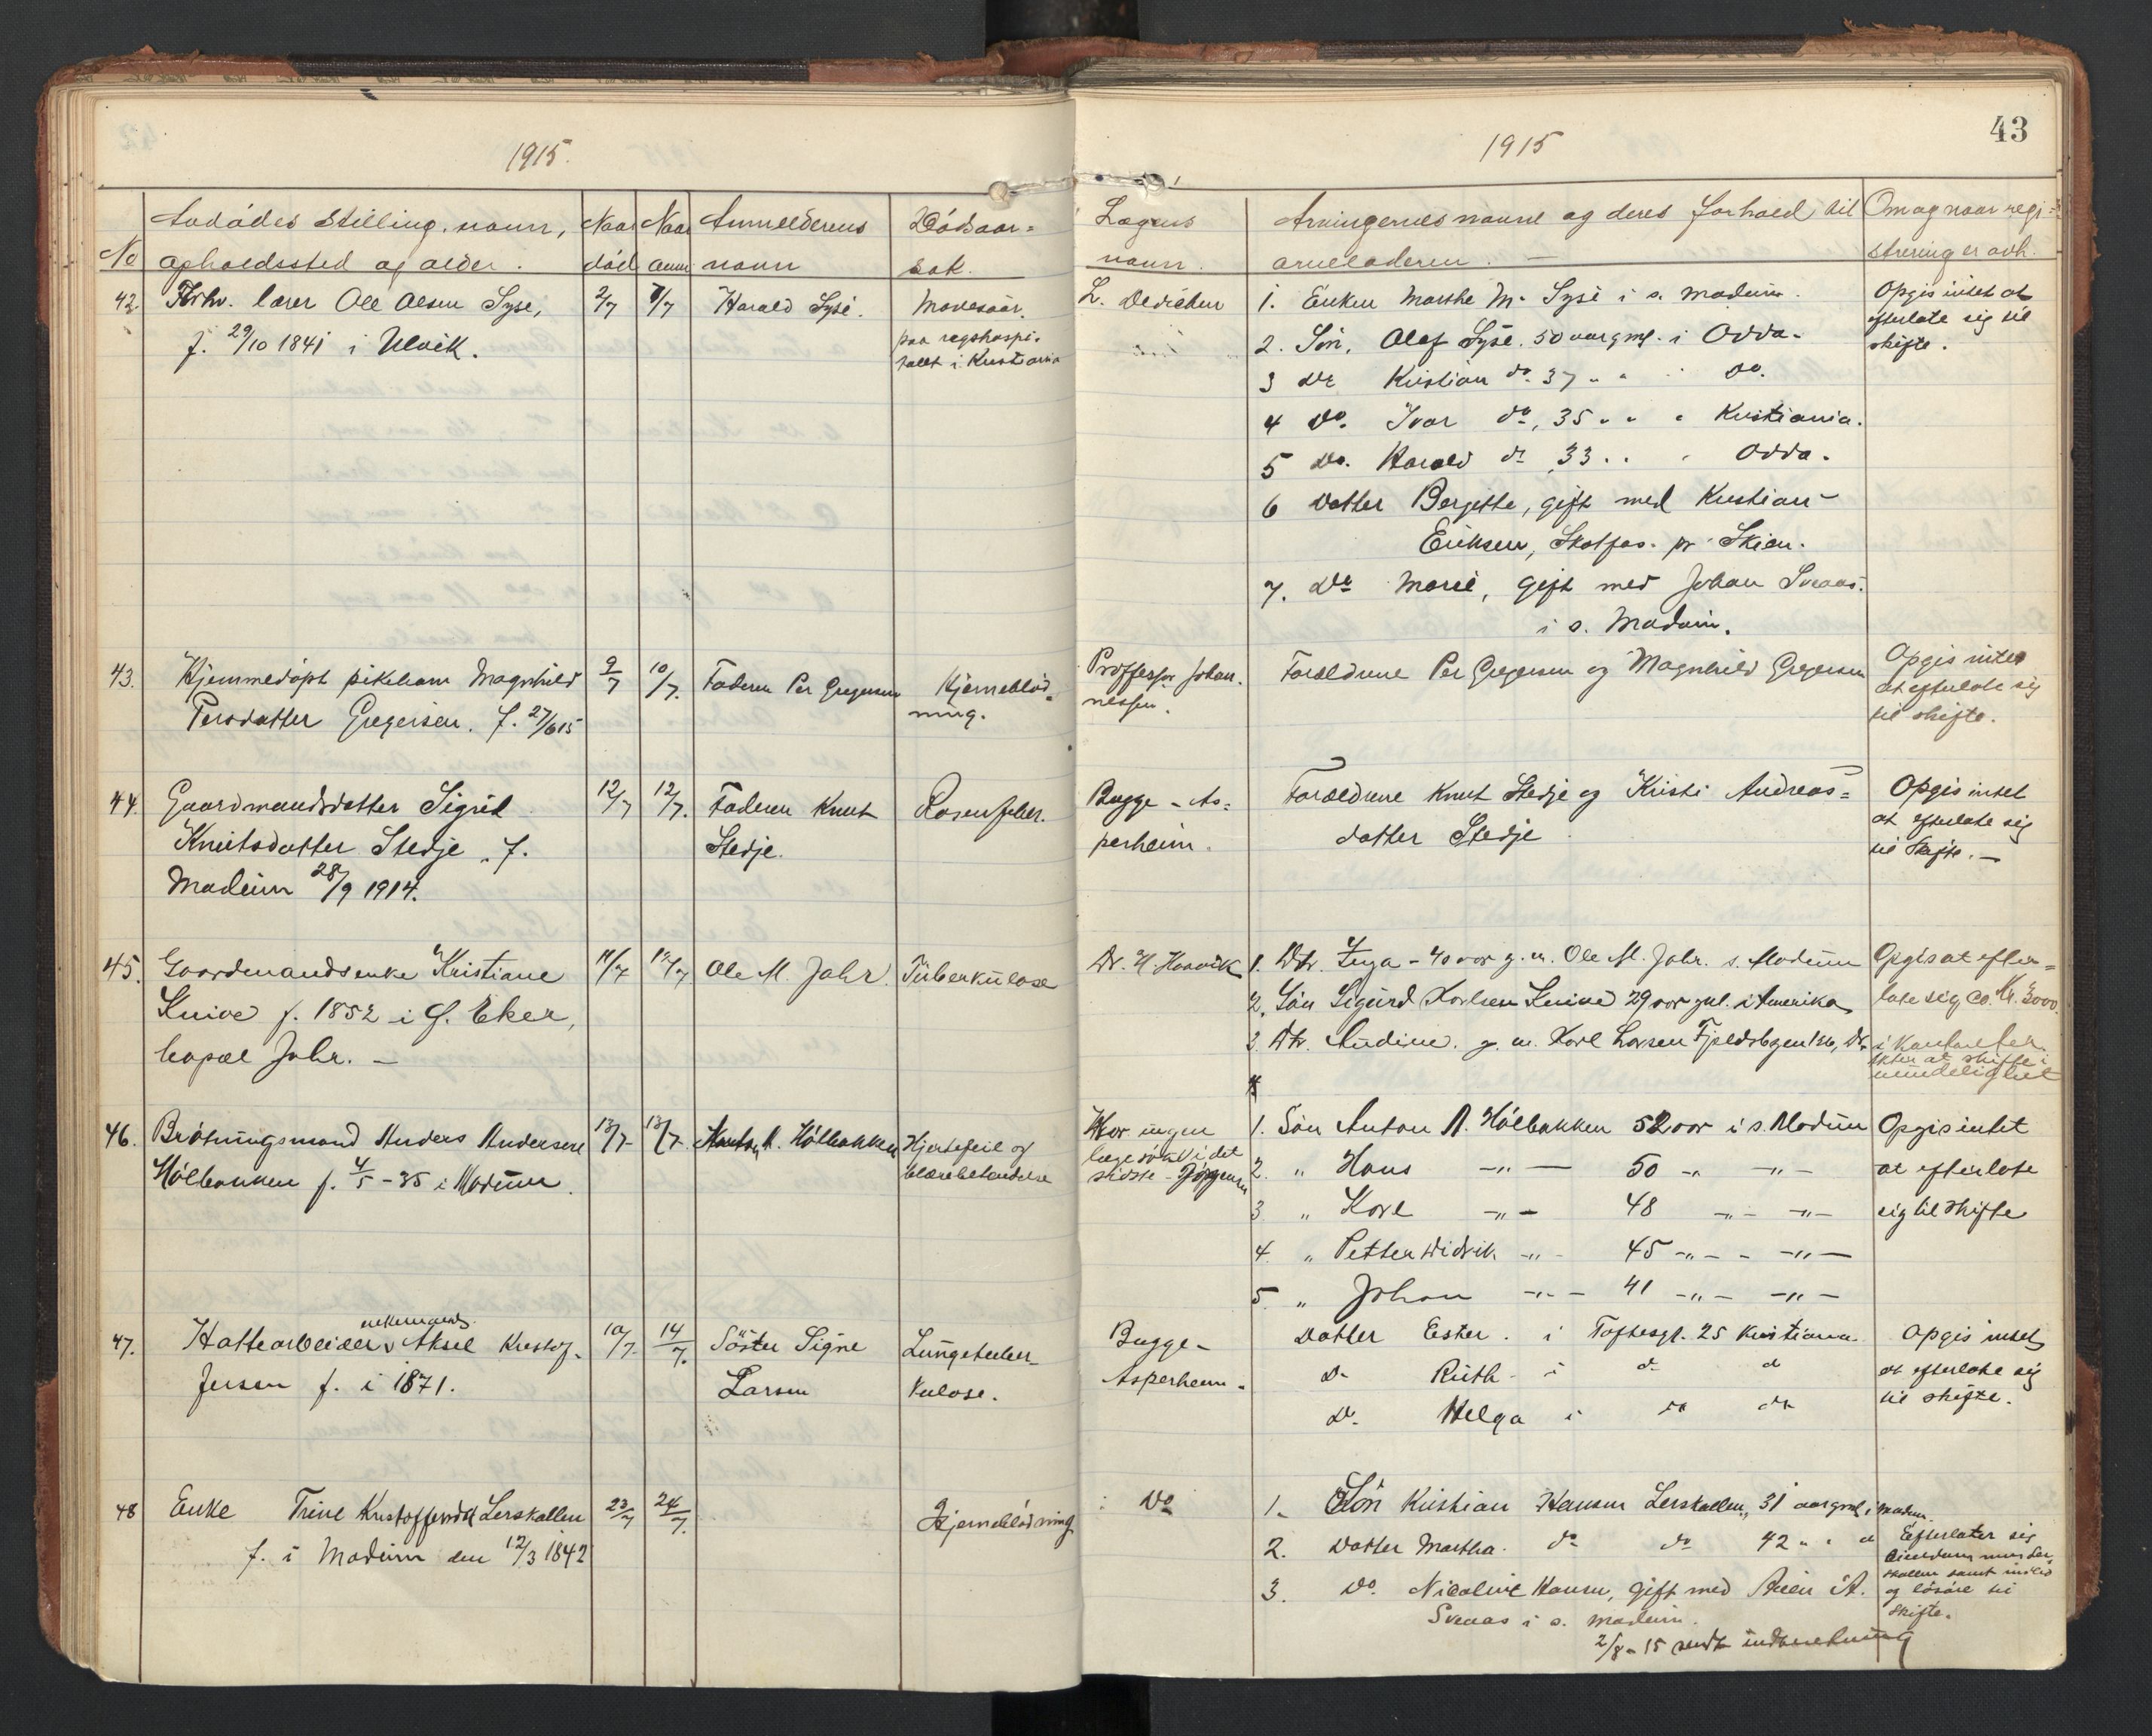 1915.
No
Avdödes Stilling, navn,
opholdssted og alder.
Naar
död
Naar
anm
Anmelderens
navn
Dödsaar=
sak.
42.
Fhv. lærer Ole Olsen Syse,
f. 29/10 1841 i Ulvik.
2/7
7/7
Harald Syse.
Mavesaar.
paa rigshospi.
tallet i Kristiania
43.
Hjemmedöpt pikebarn Magnhild
Persdatter Gregersen. f. 27/6 15
9/7
10/7.
Faderen Per Gregersen
Hjerneblöd=
ning.
44.
Gaardmandsdatter Sigrid
Knutsdatter Stedje, f.
Modum 28/9 1914.
12/7
12/7.
Faderen Knut
Stedje.
Rosenfeber.
45.
Gaardmandsenke Kristiane
Knive f. 1852 i Ö. Eker,
bopæl Jahr. —
11/7
12/7
Ole M. Jahr.
Tuberkulose
46.
Bröhningsmand Anders Andersen
Hölbakken f. 4/5 - 35 i Modum.
13/7
13/7
Anton A. Hölbakken
Hjertefeil og
blærebetændelse
47.
Hattearbeider enkemand Aksel Kristof-
fersen f. i 1871.
10/7.
14/7.
Söster Signe
Larsen
Lungetuber-
kulose.
48
Enke Trine Kristoffersdtr Lerskallen
f. i Modum den 12/3 1842
23/7
24/7.
Hjerneblödning
43
1915
Lægens
navn.
Arvingernes navne og deres forhold til
arveladeren. —
Om og naar regi-
strering er avh.
L. Dedichen
1. Enken Marthe M. Syse i s. Modum.
2. Sön, Olaf Syse. 50 aar gml. i Odda.
3 do Kristian do. 37 " " do.
4 do. Ivar do, 35 " " " Kristiania.
5 do. Harald do 33 " " Odda.
6 Datter Bergitte, gift med Kristian
Eriksen, Skotfos. pr Skien.
7. do Marie, gift med Johan Sveaas.
i s. Modum.
Opgis intet at
efterlate sig til
skifte.
Proffessor Johan.
nessen.
Forældrene Per Gregersen og Magnhild Gregersen
Opgis intet
at efterlate sig
til skifte.
Bugge - As=
perheim.
Forældrene Knut Stedje og Kristi Andreas=
datter Stedje
Opgis intet
at efterlate sig
til Skifte. —
Dr. H Haavik
1. Dtr. Inga - 40 aar g. m. Ole M. Jahr. s. Modum
2. Sön Sigurd Karlsen Knive 29 aar gml. i Amerika
3. Dtr. Andine. g. m. Karl Larsen Fjeldsbyen 136, Dr.
Opgis at efter=
late sig ca. Kr. 3000.
i kontanter
at skifte i
mindelighet
Har ingen
læge sökt i det
sidste - Jörgensen
1. Sön Anton A. Hölbakken 52 aar i s. Modum
2. " Hans -"- — 50 -" -"-
3 " Karl -"- 48 -"- -"-
4. " Petter Didrik -"- 45 -"- -"-
5. " Johan -"- 41 -"- -"-
Opgis intet
at efterlate
sig til skifte
Bugge-
Asperheim.
Datter Ester. i Toftesgt. 25 Kristiania.
do Ruth - i do do
do. Helga i do do
Opgis intet
at efterlate sig
til skifte.
do
1. Sön Kristian Hansen Lerskallen, 31 aar gml, i Modum.
2. Datter Martha. do do 42 " " "
3. do. Nicoline Hansen, gift med A.
Sveaas i s. Modum.
Efterlater sig
eiendommen Ler,
skallen samt indbo
og lösöre til
skifte.
2/8 - 15 sendt indberetning